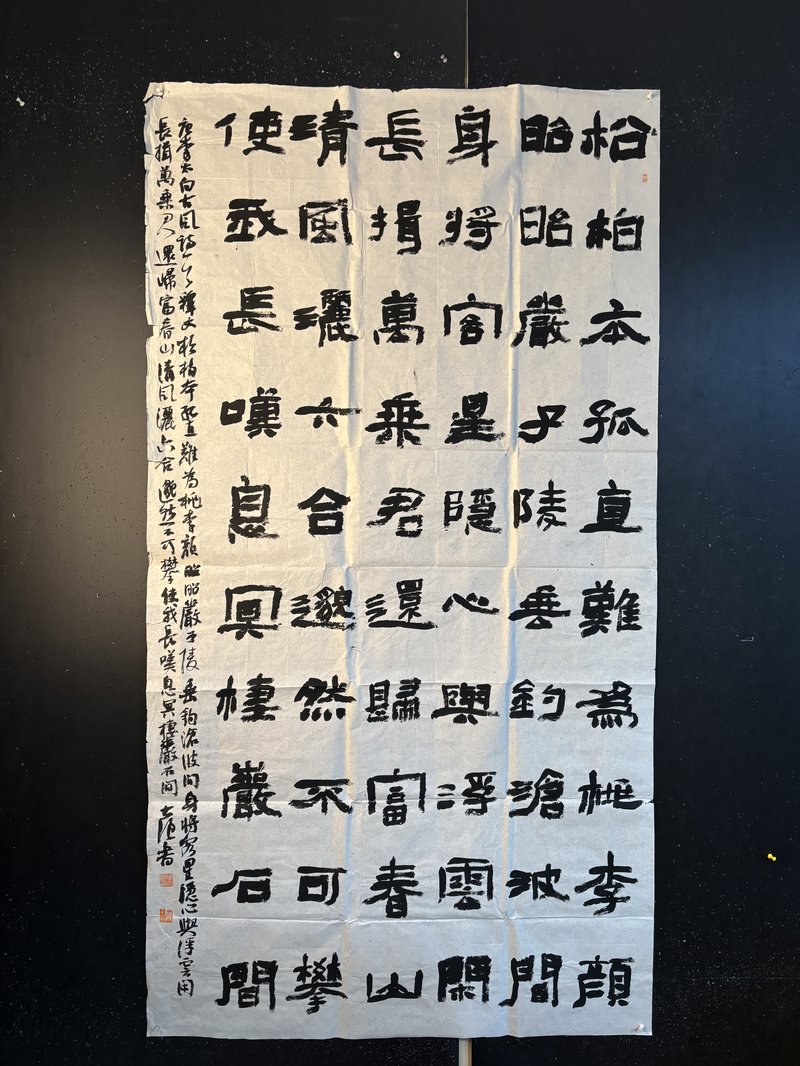 松柏本孤直難為桃李顔
昭昭嚴子陵垂釣滄波間
身將客星隱心與浮雲閑
長揖萬乘君還歸富春山
清風灑六合邈然不可攀
使我長嘆息冥棲巖石間
唐李太白古風詩一首釋文松柏本孤直難為桃李顔昭昭嚴子陵垂釣滄波間身將客星隱心與浮雲閑
長揖萬乘君還歸富春山清風灑六合邈然不可攀使我長嘆息冥棲巖石間 書